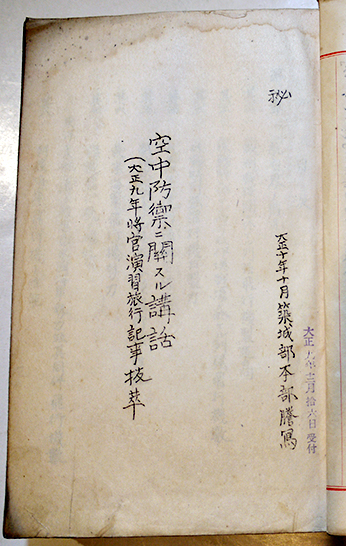 秘
大正十年十月築城部本部謄寫
空中防禦ニ關スル講話
(大正九年将官演習旅行記事抜萃
大正
月拾六日受付